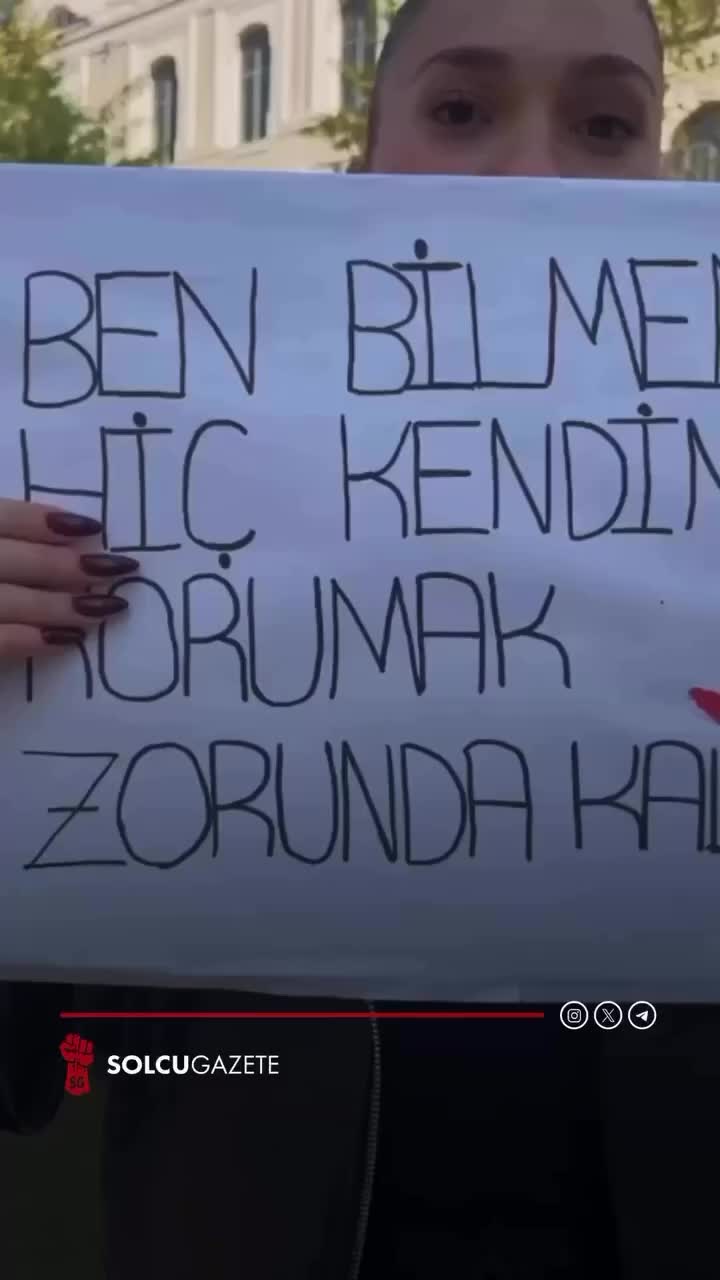 BEN BİLME
HİÇ KENDİ
KORUMAK
ZORUNDA KAL
SOLCUGAZETE
SG